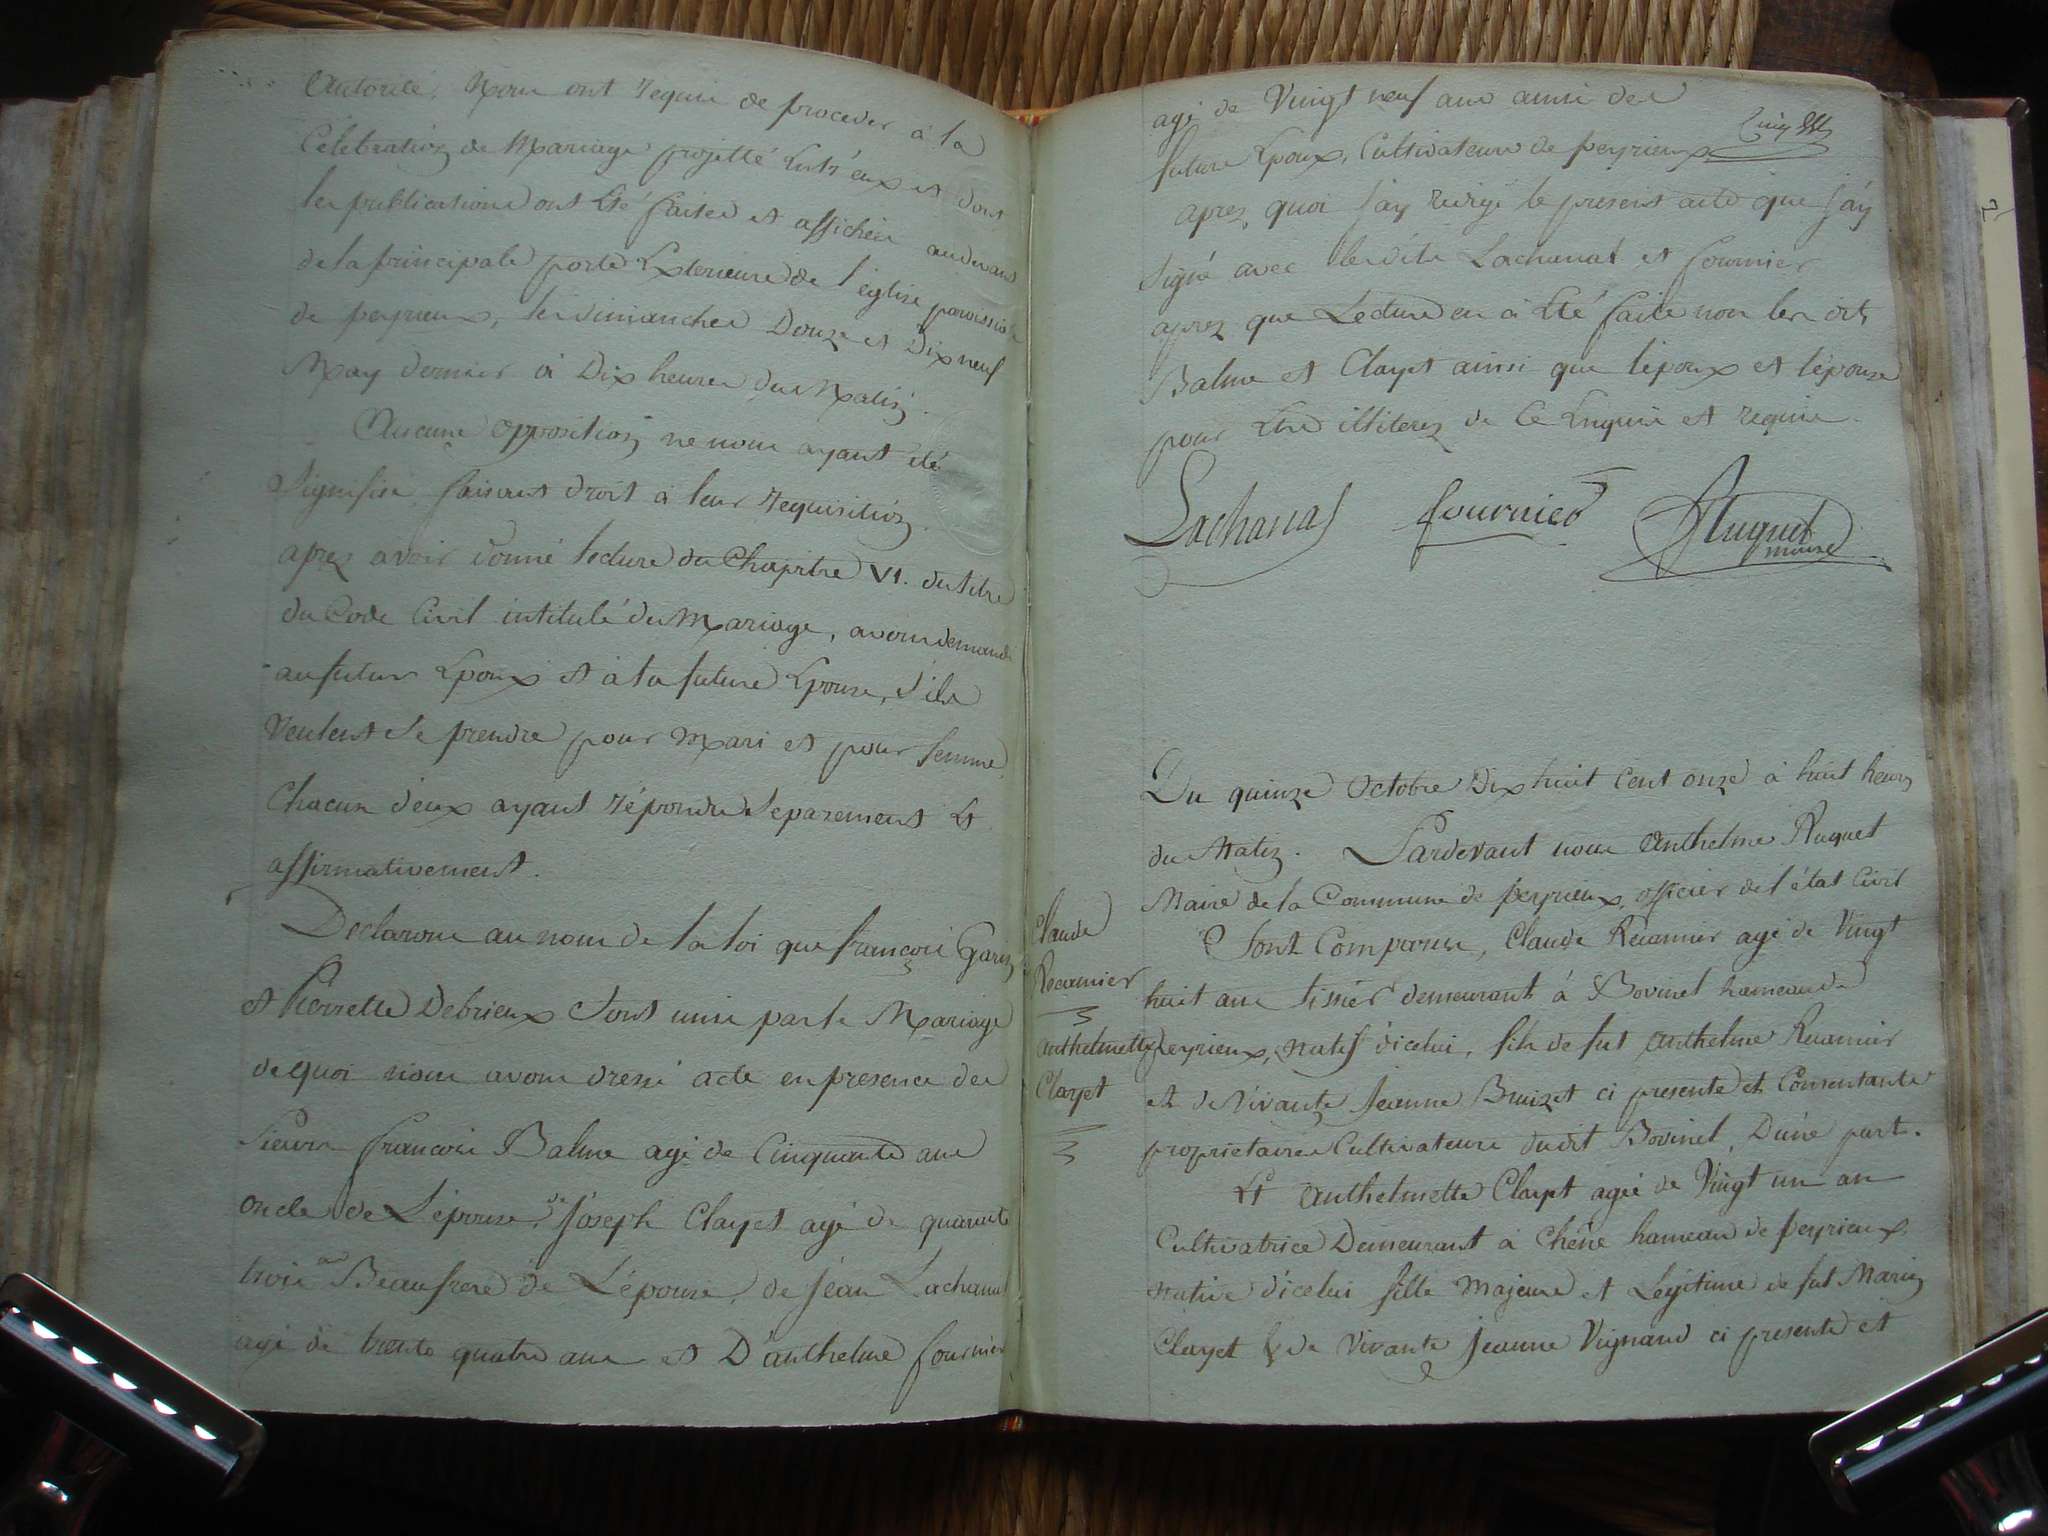 Autorité. Nous ont requis de proceder à la
Célébration de Mariage projetté Entr'eux et dont
les publications ont Eté faites et affichés au devant
de la principale porte Exterieure de l'église paroissiale
de peyrieux, les dimanches Douze et Dix neuf
May dernier à Dix heures du Matin.
Aucune opposition ne nous ayant été
Signifiée faisant droit à leur requisition
après avoir donné lecture du Chapitre VI. du titre
du Code Civil intitulé du Mariage, avons demandé
au futur Epoux et à la future Epouse, s'ils
veulent se prendre pour Mari et pour femme,
Chacun d'eux ayant répondu Separement Et
affirmativement.
Declarons au nom de la loi que françois Garin
et Pierrette Debrieux Sont unis par le Mariage
de quoi nous avons dressé acte en presence des
Sieurs françois Balme agé de Cinquante ans
oncle de L'épouse, de Joseph Clayet agé de quarante
trois ans Beaufrere de L'épouse, de Jéan Lachanal
agé de trente quatre ans et D'anthelme fournier
agé de Vingt neuf ans amis des
future Epoux, Cultivateurs de peyrieux
apres quoi J'ay redigé le present acte que J'ay
Signé avec lesdits Lachanal et fournier
apres que Lecture en à Eté faite non les dits
Balme et Clayet ainsi que l'époux et l'épouse
pour Etre illiterez de Ce Enquis et requis.
Lachanal fournier Huguet
maire
Du quinze Octobre Dix huit Cent onze à huit heures
du Matin. Pardevant nous Anthelme Huguet
Maire de la Commune de peyrieux, officier de l'état Civil
Sont Comparus, Claude Récamier agé de Vingt
huit ans tissier demeurant à Bovinel hameau de
Peyrieux, natif d'icelui, fils de fut Anthelme Récamier
et de Vivante Jeanne Bruizet ci presente et Consentante
proprietaires Cultivateurs dudit Bovinel, D'une part.
Et Anthelmette Clayet agée de Vingt un an
Cultivatrice Demeurant à Chêne hameau de peyrieux
native d'icelui fille Majeure et Légitime de fut Marin
Clayet & de Vivante Jeanne Vignand ci presente et
Claude
Recamier
Anthelmette
Clayet